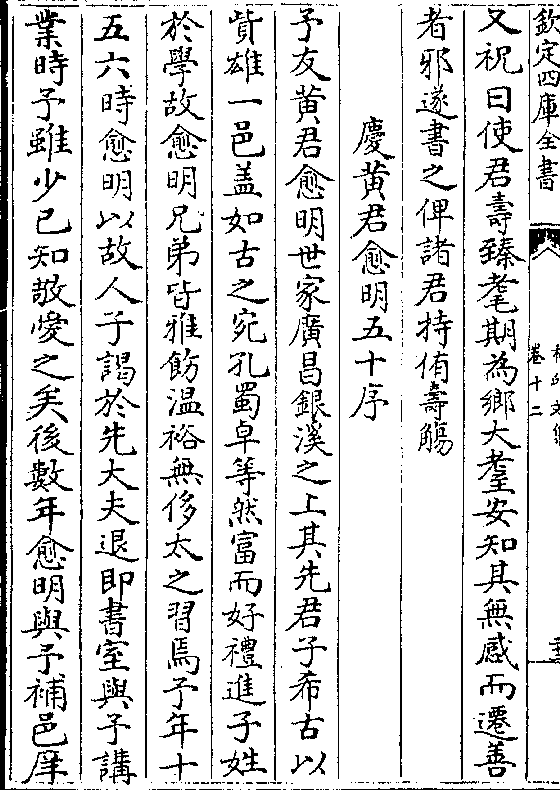 欽定四庫全書
卷十二
又祝曰使君壽臻耄期為鄉大耋安知其無感而遷善
者邪遂書之俾諸君持侑壽觴
慶黃君愈明五十序
予友黃君愈明世家廣昌銀溪之上其先君子希古以
貲雄一邑蓋如古之宛孔蜀卓等然富而好禮進子姓
於學故愈明兄弟皆雅飭溫裕無侈太之習焉予年十
五六時愈明以故人子謁於先大夫退即書室與予講
業時予雖少已知敬愛之矣後數年愈明與予補邑庠